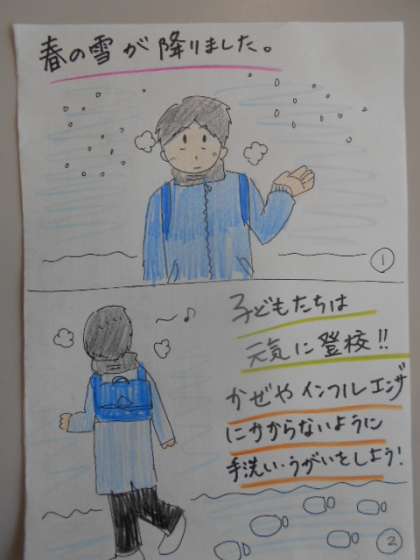 春の雪が降りました。
①
子どもたちは
元気に登校!!
かぜやインフルエンザ
にかからないように
手洗い・うがいをしよう!
②